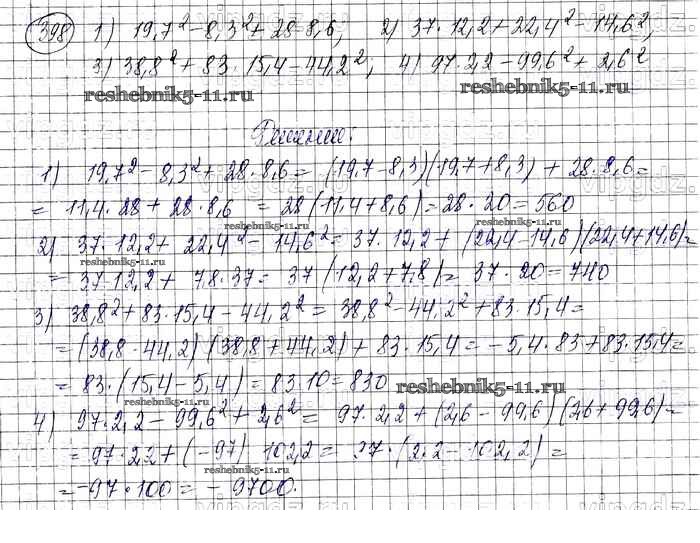 398 1) 19,7² - 8,3² + 28·8,6; 2) 37·12,2 + 22,4² - 14,6²;
3) 38,8² + 83·15,4 - 44,2²; 4) 97·2,2 - 99,6² + 2,6²
reshebnik5-11.ru reshebnik5-11.ru
Решение:
1) 19,7² - 8,3² + 28·8,6 = (19,7 - 8,3)(19,7 + 8,3) + 28·8,6 =
= 11,4·28 + 28·8,6 = 28(11,4 + 8,6) = 28·20 = 560
reshebnik5-11.ru
2) 37·12,2 + 22,4² - 14,6² = 37·12,2 + (22,4 - 14,6)(22,4 + 14,6) =
reshebnik5-11.ru
= 37·12,2 + 7,8·37 = 37(12,2 + 7,8) = 37·20 = 740
3) 38,8² + 83·15,4 - 44,2² = 38,8² - 44,2² + 83·15,4 =
= (38,8·44,2)(38,8 + 44,2) + 83·15,4 = -5,4·83 + 83·15,4 =
= 83·(15,4 - 5,4) = 83·10 = 830 reshebnik5-11.ru
4) 97·2,2 - 99,6² + 2,6² = 97·2,2 + (2,6 - 99,6)(2,6 + 99,6) =
= 97·2,2 + (-97) 102,2 = 97·(2,2 - 102,2) =
reshebnik5-11.ru
= -97·100 = -9700.